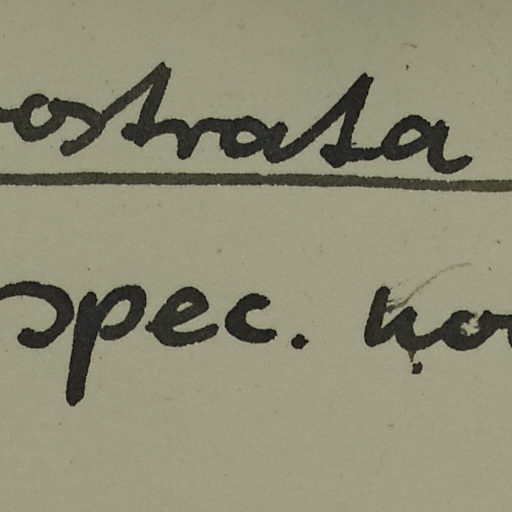 ostrata
spec. no